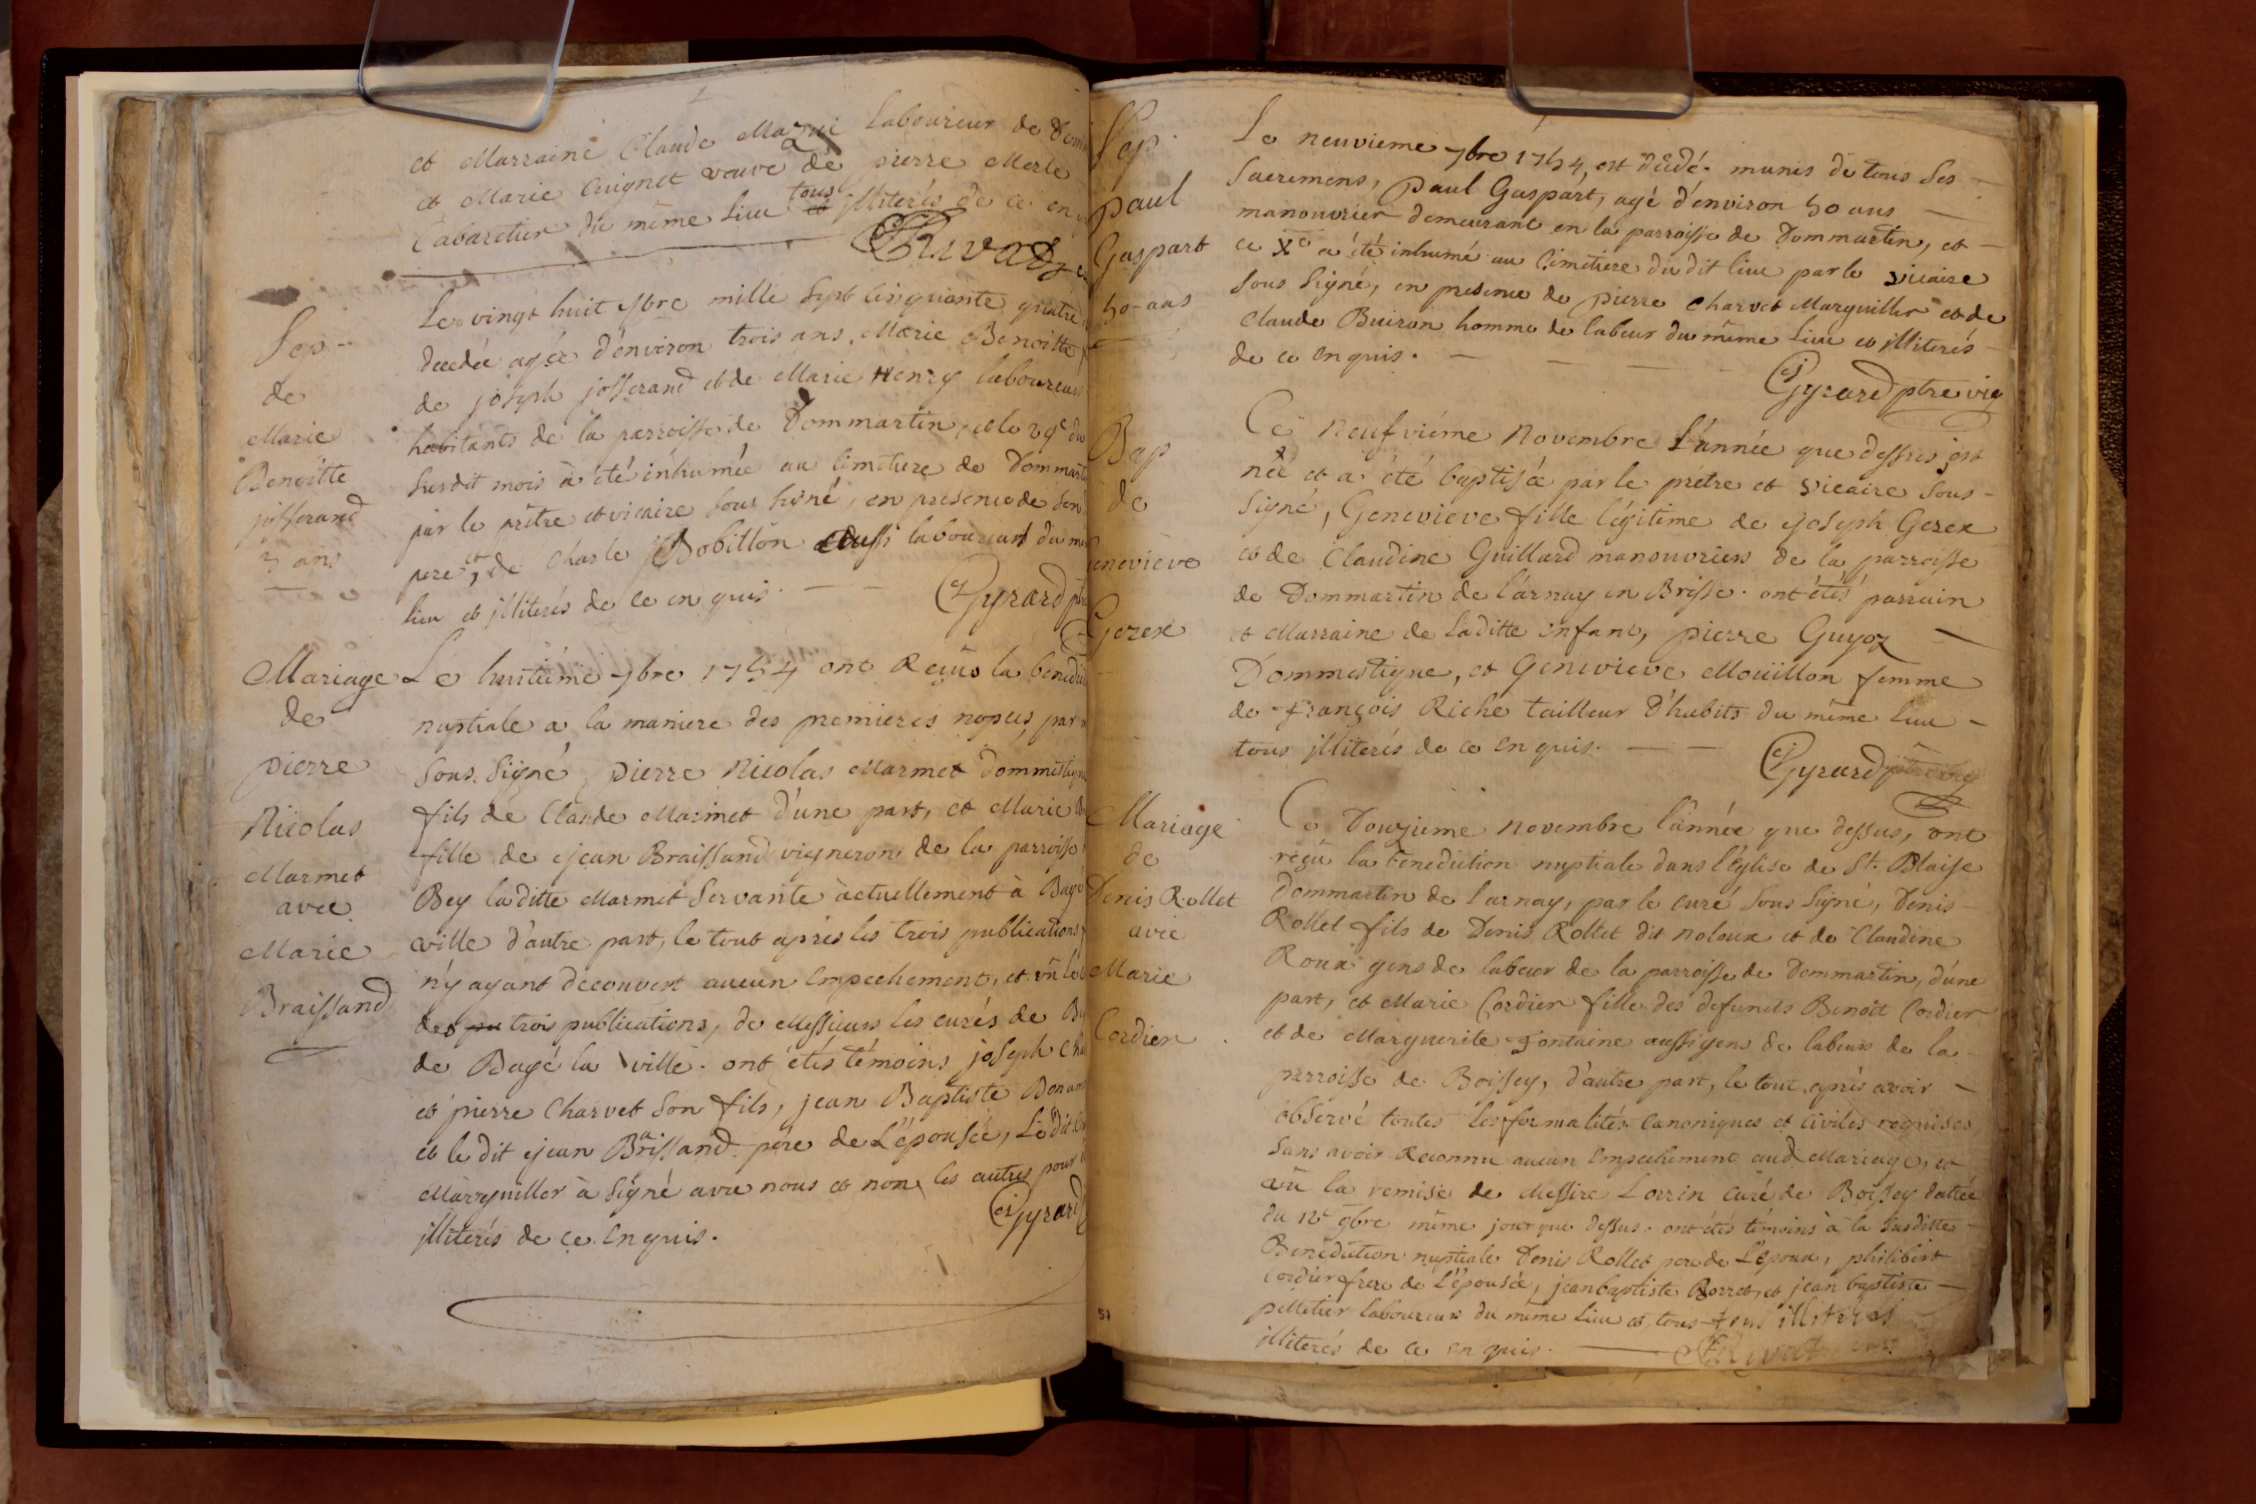 et Marraine Claude Mazui Laboureur de Dom
et Marie Cuignet veuve de pierre Merle
Cabaretier du même Lieu tous illiterés de ce en
Sep.
de
Marie
Benoitte
josserand
3 ans
Le vingt huit 9bre mille Sept cinquante quatre
decedée agée d'environ trois ans, Marie Benoitte
de joseph josserand et de Marie Henry laboureurs
habitants de la parroisse de Dommartin, et le 29e du
Susdit mois a été inhumée au cimetiere de Dommart
par le prêtre et vicaire sous signé, en presence de son
pere, et de Charle Bobillon aussi laboureur du me
lieu et illiterés de ce en quis.
Gyrard ptre
Mariage
de
pierre
Nicolas
Marmet
avec
Marie
Braissand
Le huitième 9bre 1754 ont Reçus la benedi
nuptiale a la maniere des premieres nopces, par
Sous Signé pierre Nicolas Marmet Dommestique
fils de Claude Marmet d'une part, et Marie
fille de jean Braissand vigneron de la parroisse
Bey laditte Marmet Servante actuellement à Bagé
ville d'autre part, le tout après les trois publications
n'y ayant decouvert aucun Empechement, et vû le
des trois publications, de Messieurs les curés de B
de Bagé la ville. ont étés témoins joseph Cha
et pierre Charvet Son fils, jean Baptiste Donan
et le dit jean Braissand père de L'épousée, Ledit
Marguiller à Signé avec nous et non les autres pour
illiterés de ce Enquis.
Gyrard
Sep.
paul
Gaspart
50 ans
Le neuvieme 9bre 1754, est décédé. munis de tous Ses
Sacremens, Paul Gaspart, agé d'environ 50 ans
manouvrier demeurant en la parroisse de Dommartin, et
ce Xe a été inhumé au Cimetiere du dit lieu par le vicaire
Sous Signé, en presence de pierre Charvet Marguiller et de
Claude Buiron homme de labeur du même Lieu et illiterés
de ce Enquis.
Gyrard ptre vic
Bap
de
Genevieve
Gerex
Ce neufviéme Novembre L'année que dessus, est
née et a été baptisée par le prétre et vicaire Sous-
Signé, Genevieve fille légitime de joseph Gerex
et de Claudine Guillard manouvriers de la parroisse
de Dommartin de l'arnay en Brisse. ont étés parrain
et Marraine de laditte Enfant, pierre Guyoz
Dommestique, et Genevieve Moüillon femme
de françois Riche tailleur D'habits du même Lieu
tous illiterés de ce Enquis.
Gyrard ptre vic
Mariage
de
Denis Rollet
avec
Marie
Cordier
Ce Douzieme novembre l'année que dessus, ont
reçû la benediction nuptiale dans l'Eglise de St. Blaise
Dommartin de larnay, par le curé Sous Signé, Denis
Rollet fils de Denis Rollet dit noloux et de Claudine
Roux gens de labeur de la parroisse de Dommartin, d'une
part, et Marie Cordier fille des defunts Benoit Cordier
et de Marguerite Fontaine aussi gens de labeur de la
parroisse de Boissey, d'autre part, le tout après avoir
observé toutes les formalités canoniques et civiles requises
Sans avoir Reconnu aucun Empechement aud Mariage, et
vû la remise de Messire Lorrin Curé de Boissey dattée
du 12e 9bre même jour que dessus. ont étés témoins à la Susditte
Benediction nuptiale Denis Rollet pere de L'époux, philibert
Cordier frere de l'épousée, jean baptiste Borret, et jean baptiste
pelletier laboureurs du même Lieu et tous illiterés
illiterés de ce en quis.
57